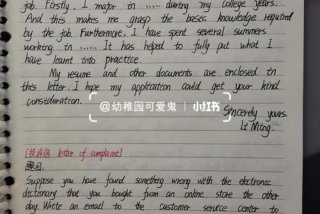 job. Firstly, I major in ...... during my college years.
And this makes me grasp the basic knowledge required
by the job. Furthermore, I have spent several summers
working in ...... It has helped to fully put what I
have learnt into practice.
My resume and other documents are enclosed in
this letter. I hope my application could get your kind
consideration.
@幼稚园可爱鬼 小红书
Sincerely yours.
Li Ming.
[投诉信 letter of complaint]
Suppose you have found something wrong with the electronic
dictionary that you bought from an online store the other
day. Write an email to the customer service center to